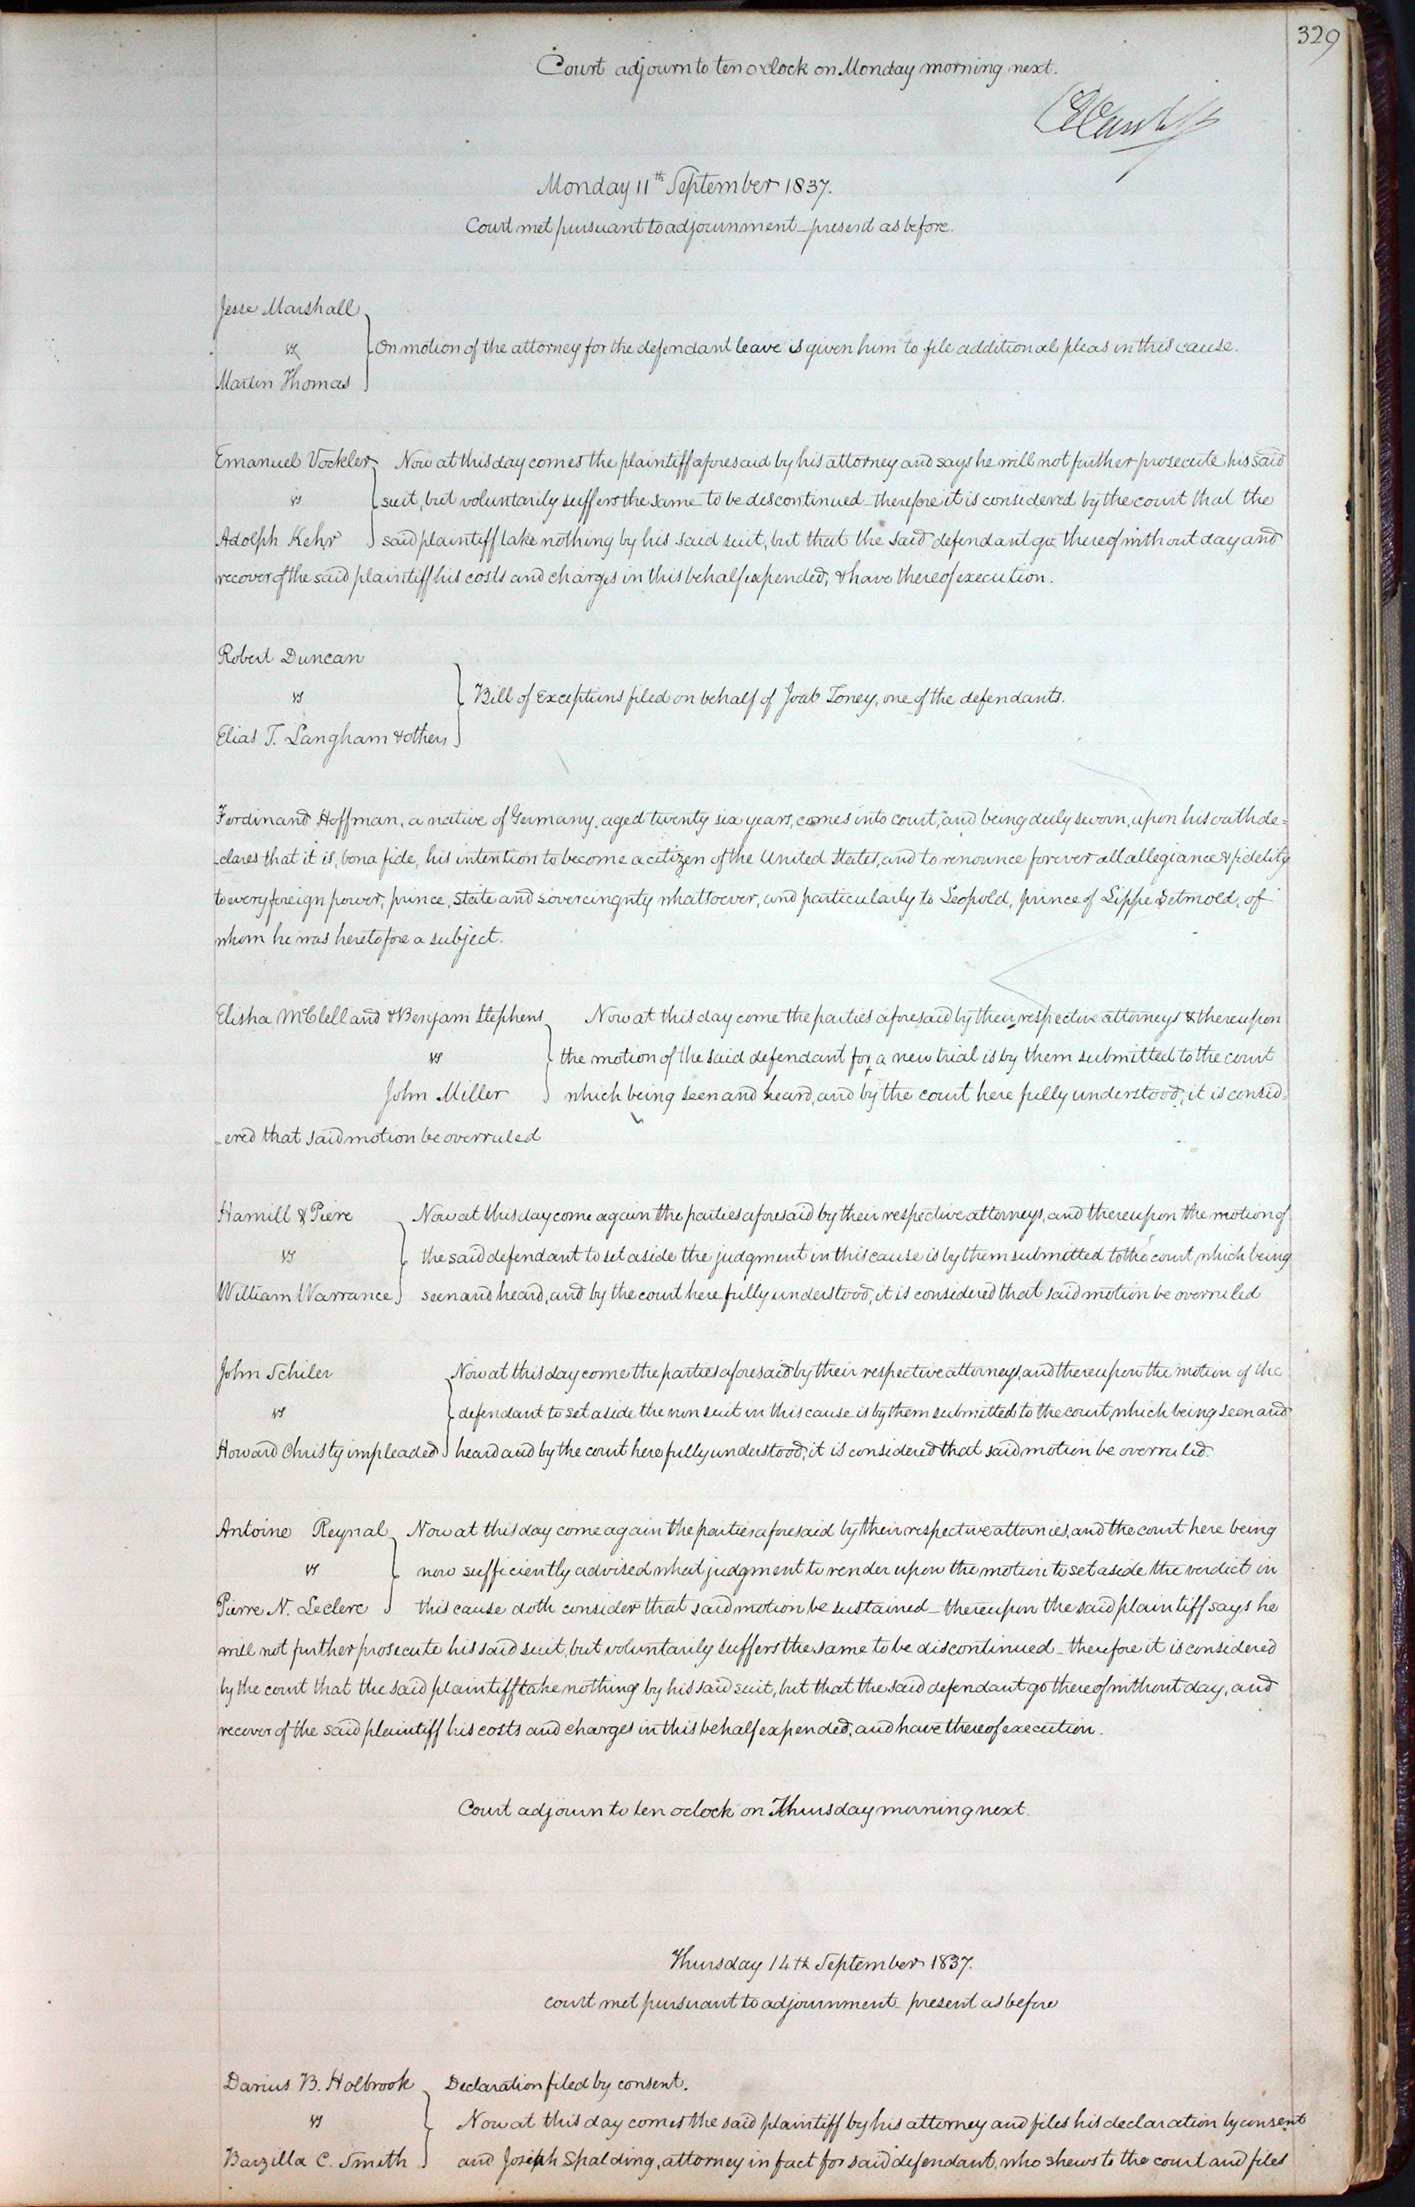 329
Court adjourn to ten oclock on Monday morning next.
Monday 11th September 1837.
Court met pursuant to adjournment - present as before.
Jesse Marshall
vs
Martin Thomas
On motion of the attorney for the defendant leave is given him to file additional pleas in this cause.
Emanuel Vockler Now at this day comes the plaintiff aforesaid by his attorney and says he will not further prosecute his said
vs suit, but voluntarily suffers the same to be discontinued - therefore it is considered by the court that the
Adolph Kehr said plaintiff take nothing by his said suit, but that the said defendant go thereof without day and
recover of the said plaintiff his costs and charges in this behalf expended, & have thereof execution.
Robert Duncan
vs Bill of Exceptions filed on behalf of Joab Toney, one of the defendants.
Elias T. Langham & others
Ferdinand Hoffman, a native of Germany, aged twenty six years, comes into court, and being duly sworn, upon his oath de=
-clares that it is, bona fide, his intention to become a citizen of the United States, and to renounce forever all allegiance & fidelity
to every foreign power, prince, state and sovereignty whatsoever, and particularly to Leopold, prince of Lippe Detmold, of
whom he was heretofore a subject.
Elisha McClelland & Benjam Stephens Now at this day come the parties aforesaid by their respective attorneys & thereupon
vs the motion of the said defendant for a new trial is by them submitted to the court
John Miller which being seen and heard, and by the court here fully understood, it is consid=
-ered that said motion be overruled
Hamill & Piere Now at this day come again the parties aforesaid by their respective attorneys, and thereupon the motion of
vs the said defendant to set aside the judgment in this cause is by them submitted to the court, which being
William Warrance seen and heard, and by the court here fully understood, it is considered that said motion be overruled
John Schiler Now at this day come the parties aforesaid by their respective attorneys, and thereupon the motion of the
vs defendant to set aside the non suit in this cause is by them submitted to the court, which being seen and
Howard Christy impleaded heard and by the court here fully understood, it is considered that said motion be overruled.
Antoine Reynal Now at this day come again the parties aforesaid by their respective attornies, and the court here being
vs now sufficiently advised what judgment to render upon the motion to set aside the verdict in
Pierre N. Leclerc this cause doth consider that said motion be sustained - thereupon the said plaintiff says he
will not further prosecute his said suit, but voluntarily suffers the same to be discontinued - therefore it is considered
by the court that the said plaintiff take nothing by his said suit, but that the said defendant go thereof without day, and
recover of the said plaintiff his costs and charges in this behalf expended, and have thereof execution.
Court adjourn to ten oclock on Thursday morning next.
Thursday 14th September 1837.
court met pursuant to adjournment present as before
Darius B. Holbrook Declaration filed by consent.
vs Now at this day comes the said plaintiff by his attorney and files his declaration by consent
Barzilla C. Smith and Joseph Spalding, attorney in fact for said defendant, who shews to the court and files